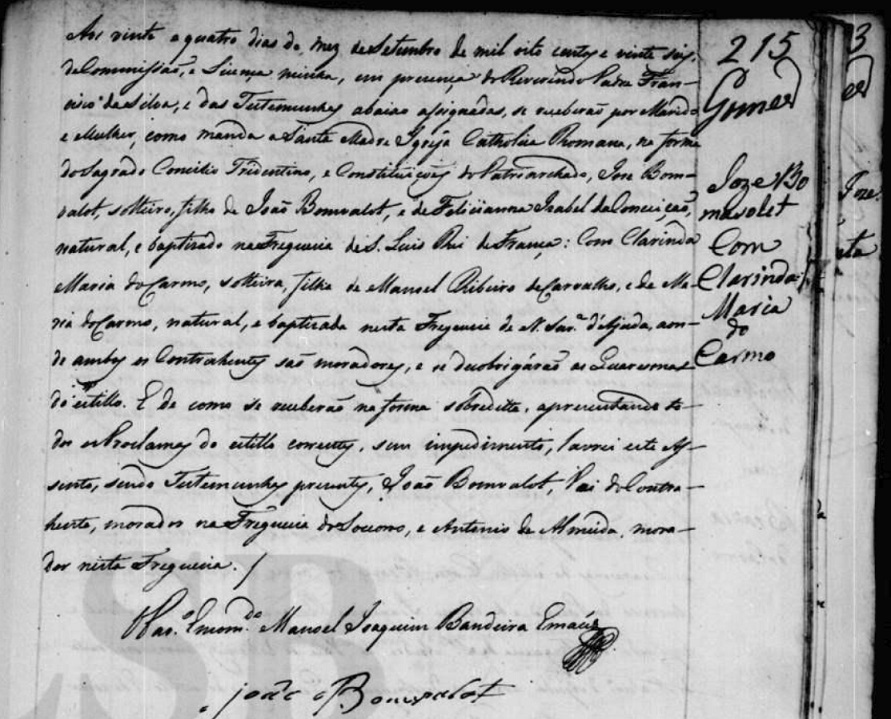 Aos vinte e quatro dias do mez de Setembro de mil oito centos e vinte seis,
de Commissão, e Licença minha, em prezença do Reverendo Padre Fran-
cisco da Silva, e das Testemunhas abaixo assignadas, se receberão por Marido
e Mulher, como manda a Santa Madre Igreja Catholica Romana, na forma
do Sagrado Concilio Tridentino, e Constituições do Patriarchado, Jose Bom-
valot, solteiro, filho de João Bomvalot, e de Felicianna Izabel da Conceição,
natural, e baptizado na Freguezia de S. Luis Rei de França: Com Clarinda
Maria do Carmo, solteira, filha de Manoel Ribeiro de Carvalho, e de Ma-
ria do Carmo, natural, e baptizada nesta Freguezia de N. Snr.ª d'Ajuda, aon-
de ambos os Contrahentes são moradores, e se desobrigárão as Quaresmas
do estillo. E de como se receberão na forma sobredita, aprezentando to-
dos os Proclames do estillo correntes, sem impedimento, lavrei este As-
sento, sendo Testemunhas prezentes, João Bomvalot, Pai do Contra-
hente, morador na Freguezia do Socorro, e Antonio de Almeida, mora-
dor nesta Freguezia. /
O Par.º Encom.do Manoel Joaquim Bandeira
João Bomvalot
215
Joze Bo
mavolet
Com
Clarinda
Maria
do
Carmo
3
Joze